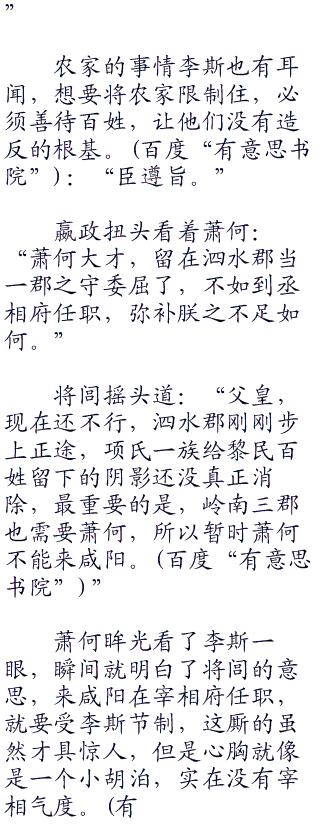 ”
农家的事情李斯也有耳
闻，想要将农家限制住，必
须善待百姓，让他们没有造
反的根基。(百度“有意思书
院”)：“臣遵旨。”
嬴政扭头看着萧何：
“萧何大才，留在泗水郡当
一郡之守委屈了，不如到丞
相府任职，弥补朕之不足如
何。”
将闾摇头道：“父皇，
现在还不行，泗水郡刚刚步
上正途，项氏一族给黎民百
姓留下的阴影还没真正消
除，最重要的是，岭南三郡
也需要萧何，所以暂时萧何
不能来咸阳。(百度“有意思
书院”)”
萧何眸光看了李斯一
眼，瞬间就明白了将闾的意
思，来咸阳在宰相府任职，
就要受李斯节制，这厮的虽
然才具惊人，但是心胸就像
是一个小胡泊，实在没有宰
相气度。(有